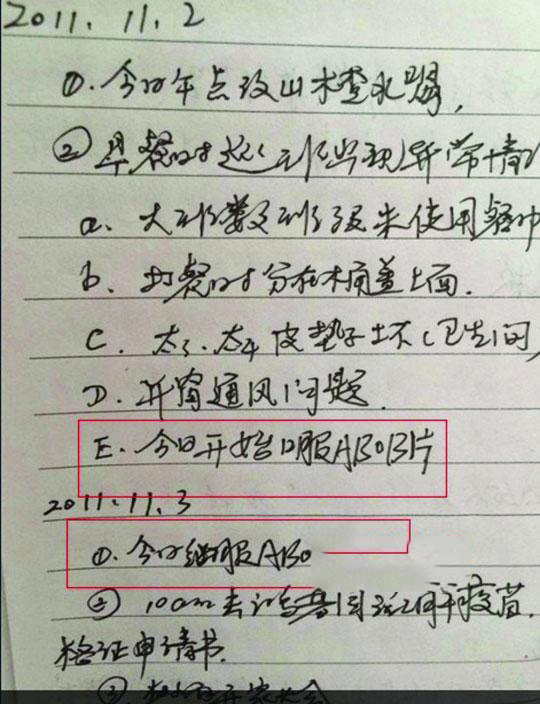 2011.11.2
①.今日午点改山楂水喝,
②早餐时 出现异常情
a. 大 数 未使用餐巾
b. 打餐时分在木桶盖上面.
C. 太3、太4皮垫子土坏(卫生间,
D. 开窗通风问题.
E. 今日开始口服ABOB片
2011.11.3
①.今日继服ABO
② 10am去 疫苗
格证申请书.
③ 开家长会